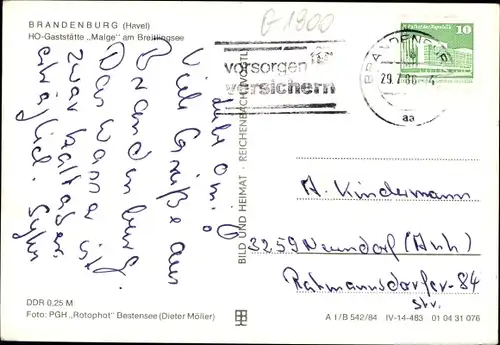 BRANDENBURG (Havel)
HO-Gaststätte „Malge" am Breitlingsee
G-1900
vorsorgen
versichern
BRANDENBURG
29.7.86
aa
10
Liebe Omi!
Viele Grüße aus
Brandenburg.
Das Wann ist
zwar kalt aber
erträglich.
BILD UND HEIMAT · REICHENBACH (VOGTL)
A. Kindermann
3259 Neundorf (Anh)
Rathmannsdorfer-84
Str.
DDR 0,25 M
Foto: PGH „Rotophot" Bestensee (Dieter Möller)
A I/B 542/84 IV-14-483 01 04 31 076